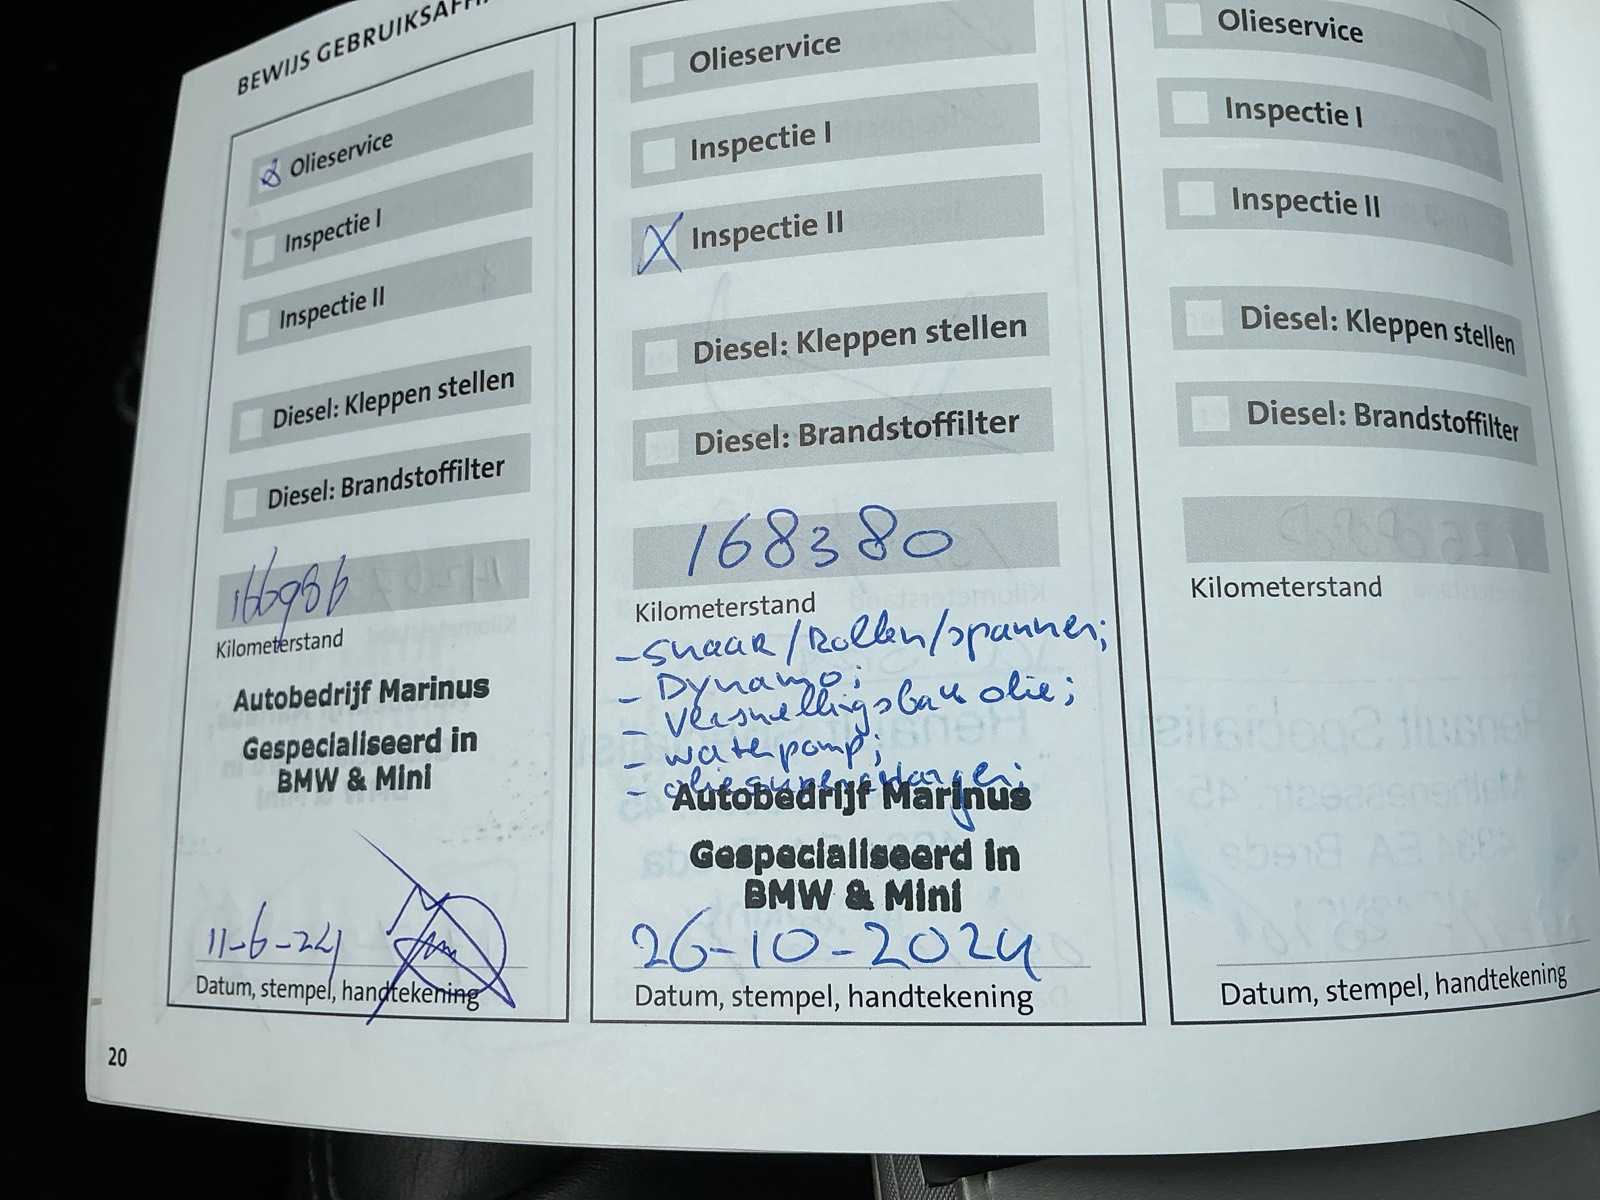 BEWIJS GEBRUIKSAFH
Olieservice
Inspectie I
Inspectie II
Diesel: Kleppen stellen
Diesel: Brandstoffilter
166986
Kilometerstand
Autobedrijf Marinus
Gespecialiseerd in
BMW & Mini
11-6-24
Datum, stempel, handtekening
20
Olieservice
Inspectie I
X Inspectie II
Diesel: Kleppen stellen
Diesel: Brandstoffilter
168380
Kilometerstand
- snaar/Rollen/spanner;
- Dynamo;
- Versnellingsbak olie;
- waterpomp;
Autobedrijf Marinus
Gespecialiseerd in
BMW & Mini
26-10-2024
Datum, stempel, handtekening
Olieservice
Inspectie I
Inspectie II
Diesel: Kleppen stellen
Diesel: Brandstoffilter
Kilometerstand
Datum, stempel, handtekening